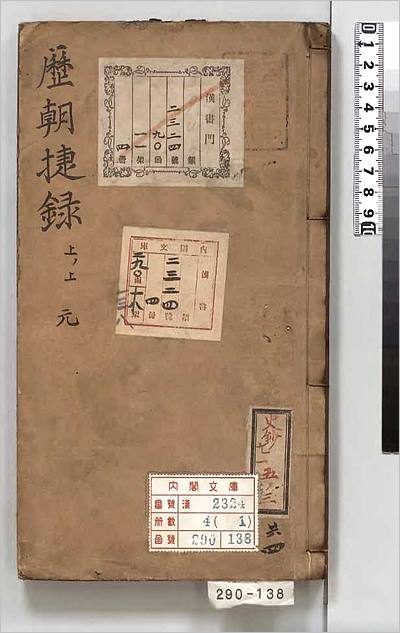 歷朝捷録
上ノ上
元
漢書門
二三二四
九〇
一一
四
類
號
函
架
冊
内閣文庫
漢書
二三二四
四
内閣文庫
番號 漢 2324
冊數 4(1)
函號 290 138
史鈔
七
共四
290-138
0 1 2 3 4 5 6 7 8 9 10